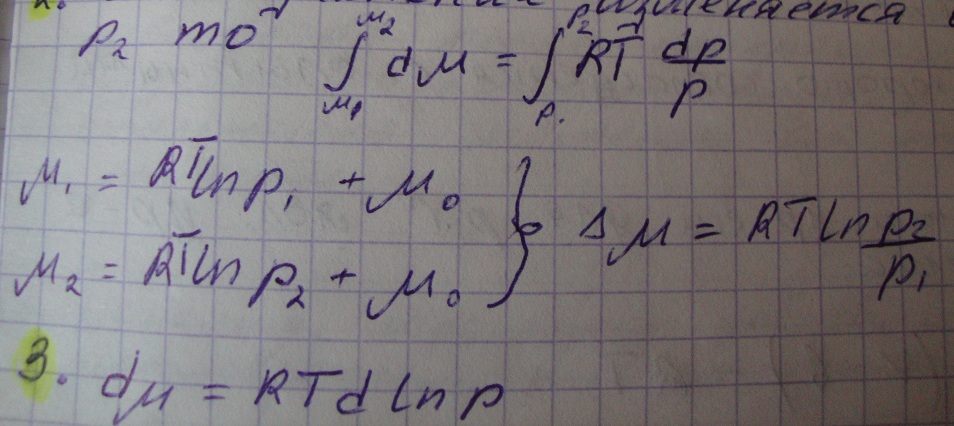 2. изменяется
p₂ то ∫_{μ₁}^{μ₂} dμ = ∫_{p₁}^{p₂} RT dp/p
μ₁ = RT ln p₁ + μ₀
μ₂ = RT ln p₂ + μ₀ } Δμ = RT ln p₂/p₁
3. dμ = RT d ln p